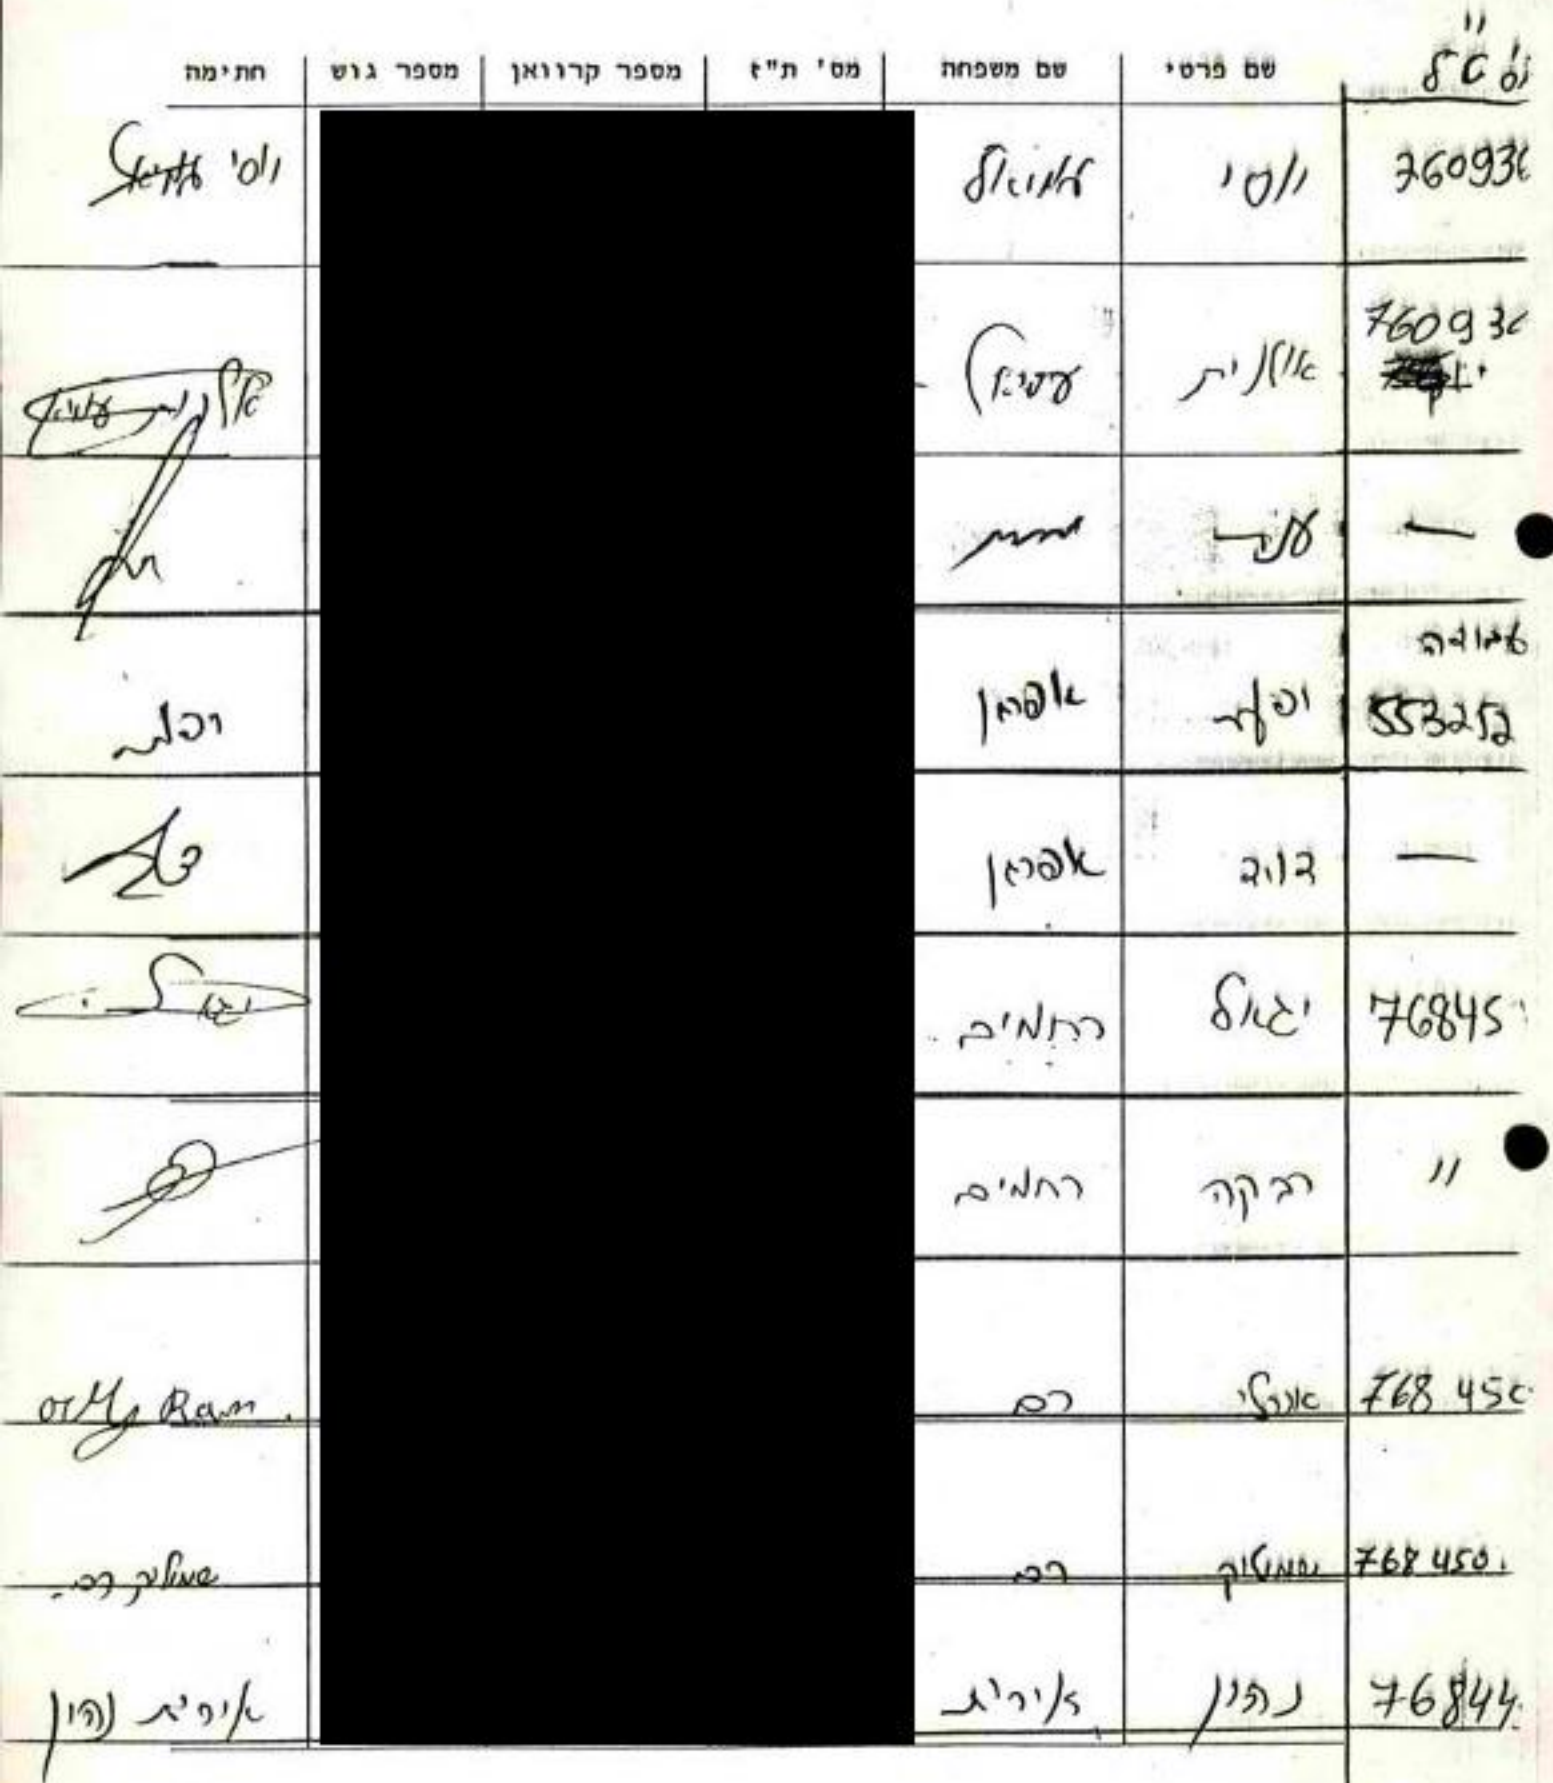 מס' טל' שם פרטי שם משפחה מס' ת"ז מספר קרוואן מספר גוש חתימה
76093 יוסי עמיאל יוסי עמיאל
76093 אילנית עמיאל אילנית עמיאל
— ענת
עבודה
553252 יפעת אפרגן יפעת
— דויד אפרגן
76845 יגאל רחמים יגאל
" רבקה רחמים
768 45 אורלי רם orly Ram.
768 450. שמוליק רם שמוליק רם
76844 נהון אירית אירית נהון